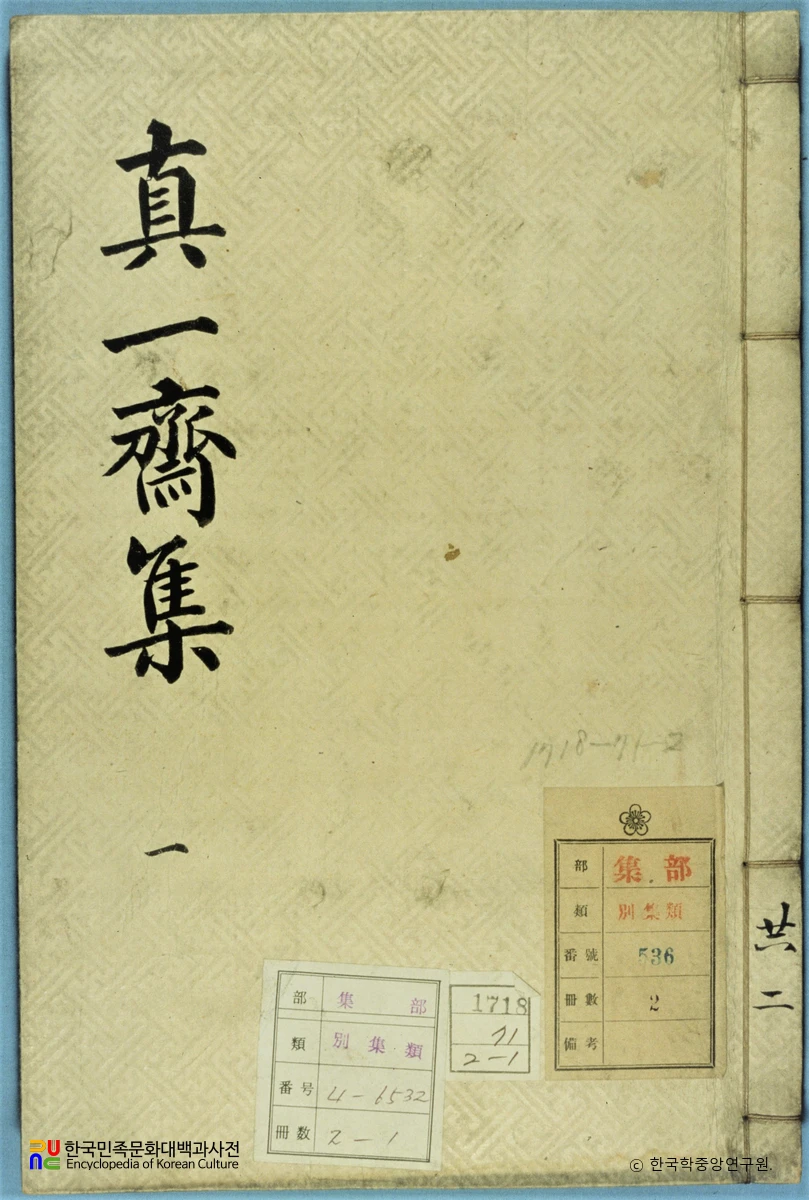 真一齋集
一
共二
1718-71-2
部 集部
類 別集類
番號 536
冊數 2
備考
部 集部
類 別集類
番号 4-6532
冊数 2-1
1718
71
2-1
한국민족문화대백과사전
Encyclopedia of Korean Culture
© 한국학중앙연구원.